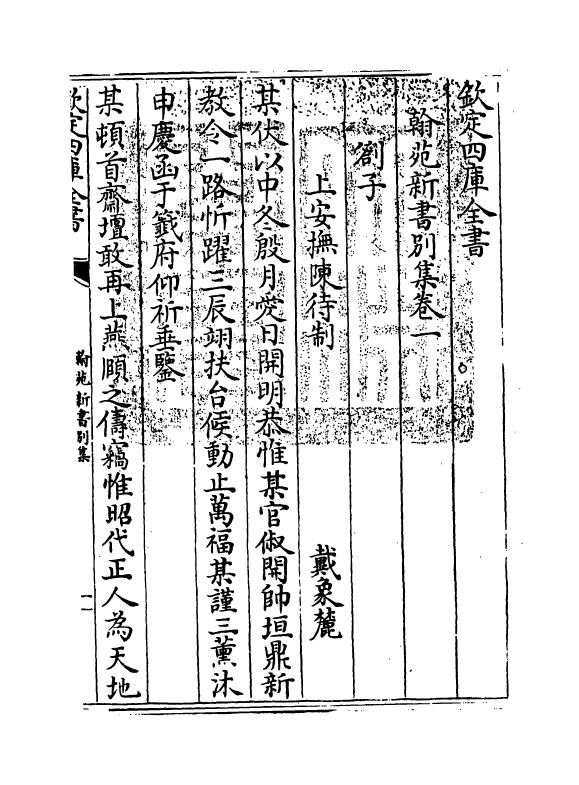 欽定四庫全書
翰苑新書別集卷一
劄子
上安撫陳待制
戴象麓
某伏以中冬殷月愛日開明恭惟某官俶開帥垣鼎新
教令一路忻躍三辰翊扶台候動止萬福某謹三薰沐
申慶函于籤府仰祈垂鑒
某頓首齋壇敢再上燕頤之儔竊惟昭代正人為天地
欽定四庫全書
翰苑新書別集
一